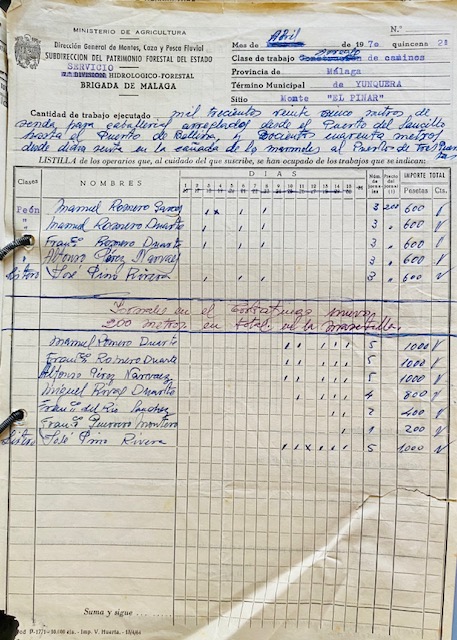 MINISTERIO DE AGRICULTURA
Dirección General de Montes, Caza y Pesca Fluvial
SUBDIRECCION DEL PATRIMONIO FORESTAL DEL ESTADO
SERVICIO
HIDROLOGICO-FORESTAL
BRIGADA DE MALAGA
N.º
Mes de Abril de 1970 quincena 2ª
Clase de trabajo de caminos
Provincia de Málaga
Término Municipal de YUNQUERA
Sitio Monte "EL PINAR"
Cantidad de trabajo ejecutado: mil trecientos veinte cinco metros de
senda para caballerias arreglados desde el Puerto del Saucillo
hasta el Puerto de Bellina, y Docientos cuarenta metros
desde dicha senta en la cañada de al Puerto de Tres
LISTILLA de los operarios que, al cuidado del que suscribe, se han ocupado de los trabajos que se indican:
Clases NOMBRES DIAS Núm. de jornales Precio del IMPORTE TOTAL
Pesetas Cts.
Peón Manuel Romero García 3 200 600
" Manuel Romero Duarte 3 " 600
" Franco Romero Duarte 3 " 600
" Alfonso Pérez Narvaez 3 " 600
Listero José Pino Rivera 3 " 600
Jornales en el Contrafuego nuevo
200 metros en total en la
Manuel Romero Duarte 5 1000
Franco Romero Duarte 5 1000
Alfonso Pérez Narvaez 5 1000
Miguel Rivas Duarte 4 800
Franco del Rio Sanchez 2 400
Franco Guerrero Montero 1 200
Listero José Pino Rivera 5 1000
Suma y sigue
Mod P-17/1 - Imp. V. Huerta.